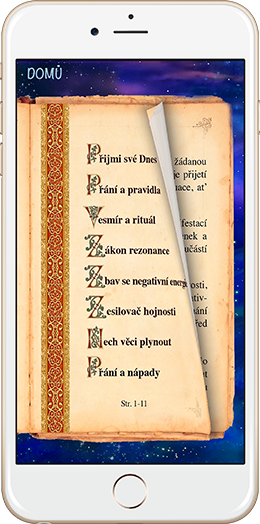 DOMŮ
Přijmi své Dnes
Přání a pravidla
Vesmír a rituál
Zákon rezonance
Zbav se negativní energie
Zesilovač hojnosti
Nech věci plynout
Přání a nápady
Str. 1-11
žádanou
je přijetí
uace, at'
festací
nek a
účástí
osti,
ativ-
ání
řed